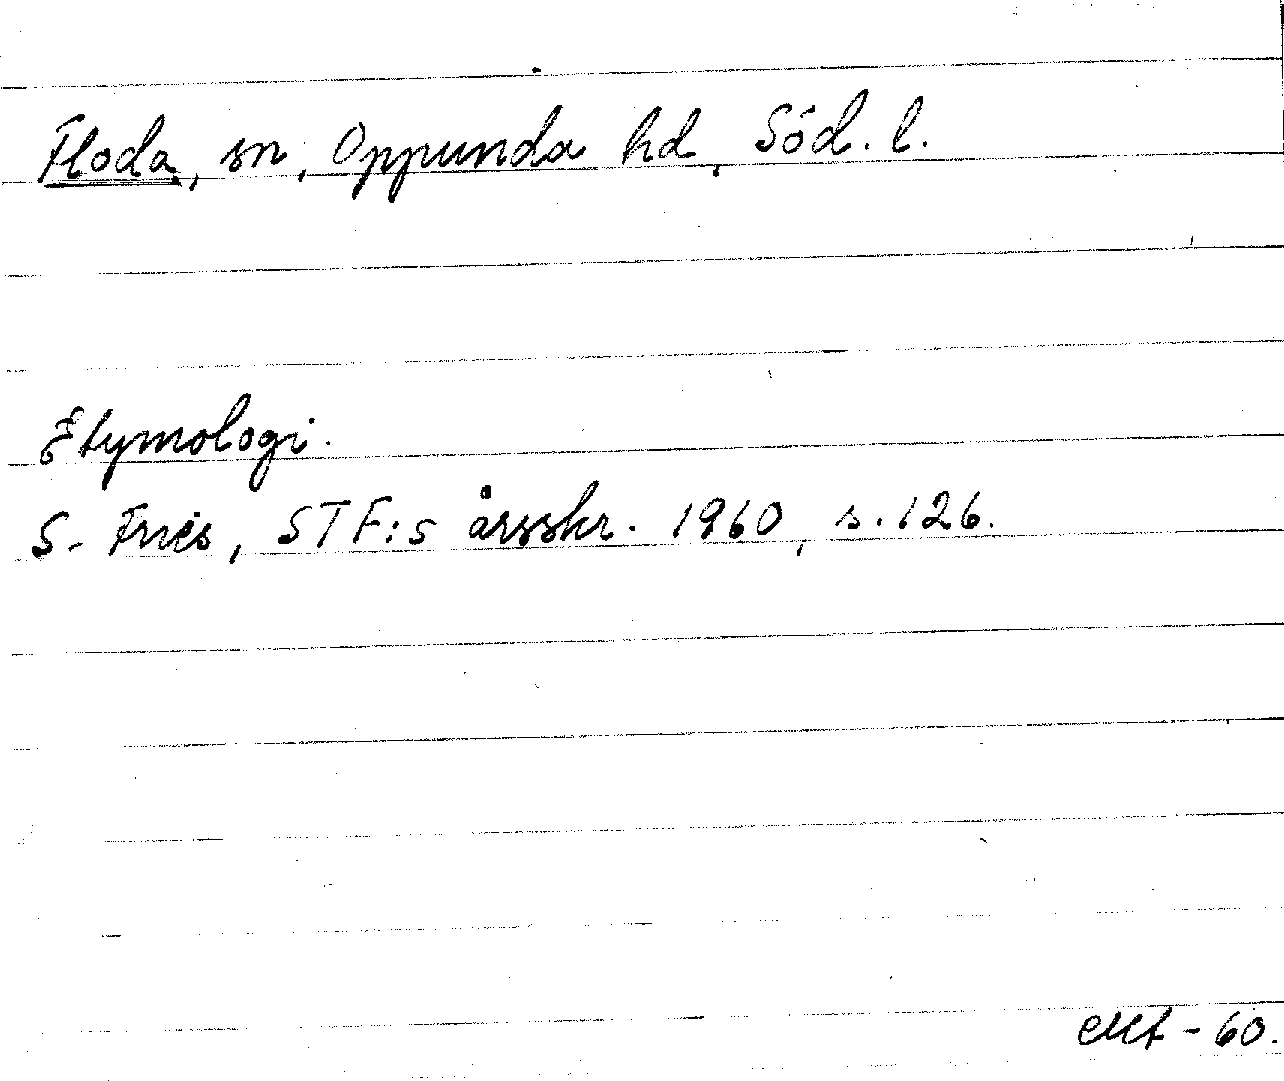 Floda, sn, Oppunda hd, Söd. l.
Etymologi.
S. Fries, STF:s årsskr. 1960, s. 126.
- 60.